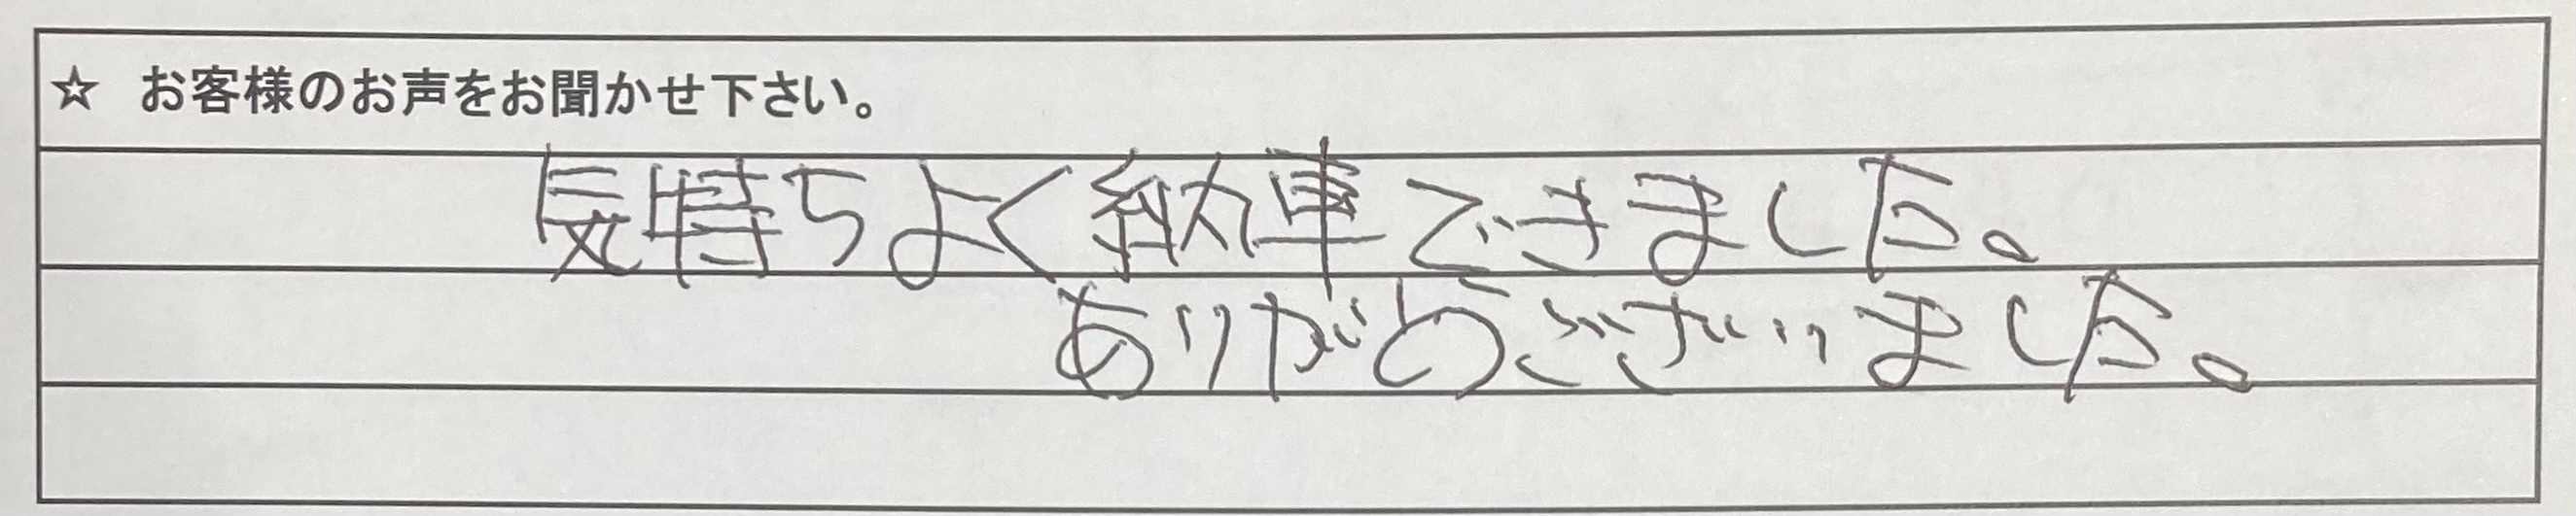 ☆ お客様のお声をお聞かせ下さい。
気持ちよく納車できました。
ありがとうございました。